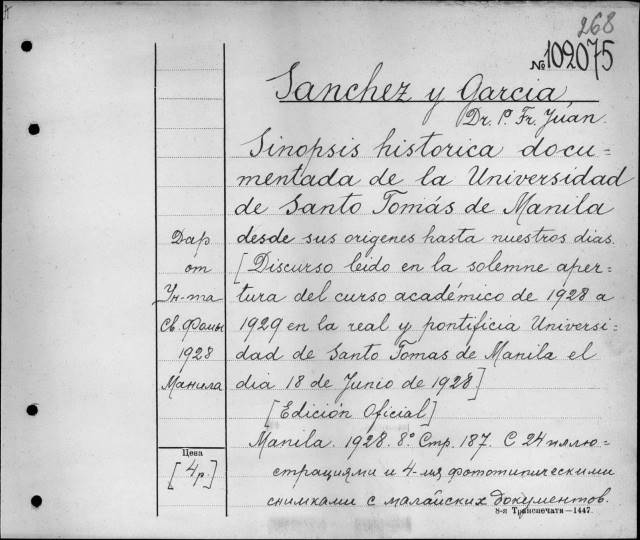 268
№ 109075
Sanchez y Garcia,
Dr. P. Fr. Júan.
Sinopsis historica docu-
mentada de la Universidad
de Santo Tomás de Manila
desde sus origenes hasta nuestros dias.
[Discurso leido en la solemne aper-
tura del curso académico de 1928 a
1929 en la real y pontificia Universi-
dad de Santo Tomas de Manila el
dia 18 de Junio de 1928]
[Edición Oficial]
Manila. 1928. 8° Стр. 187. С 24 иллю-
страциями и 4-мя фототипическими
снимками с малайских документов.
Дар
от
Ун-та
Св. Фомы
1928
Манила
Цена
[4р.]
8-я Транспечати—1447.